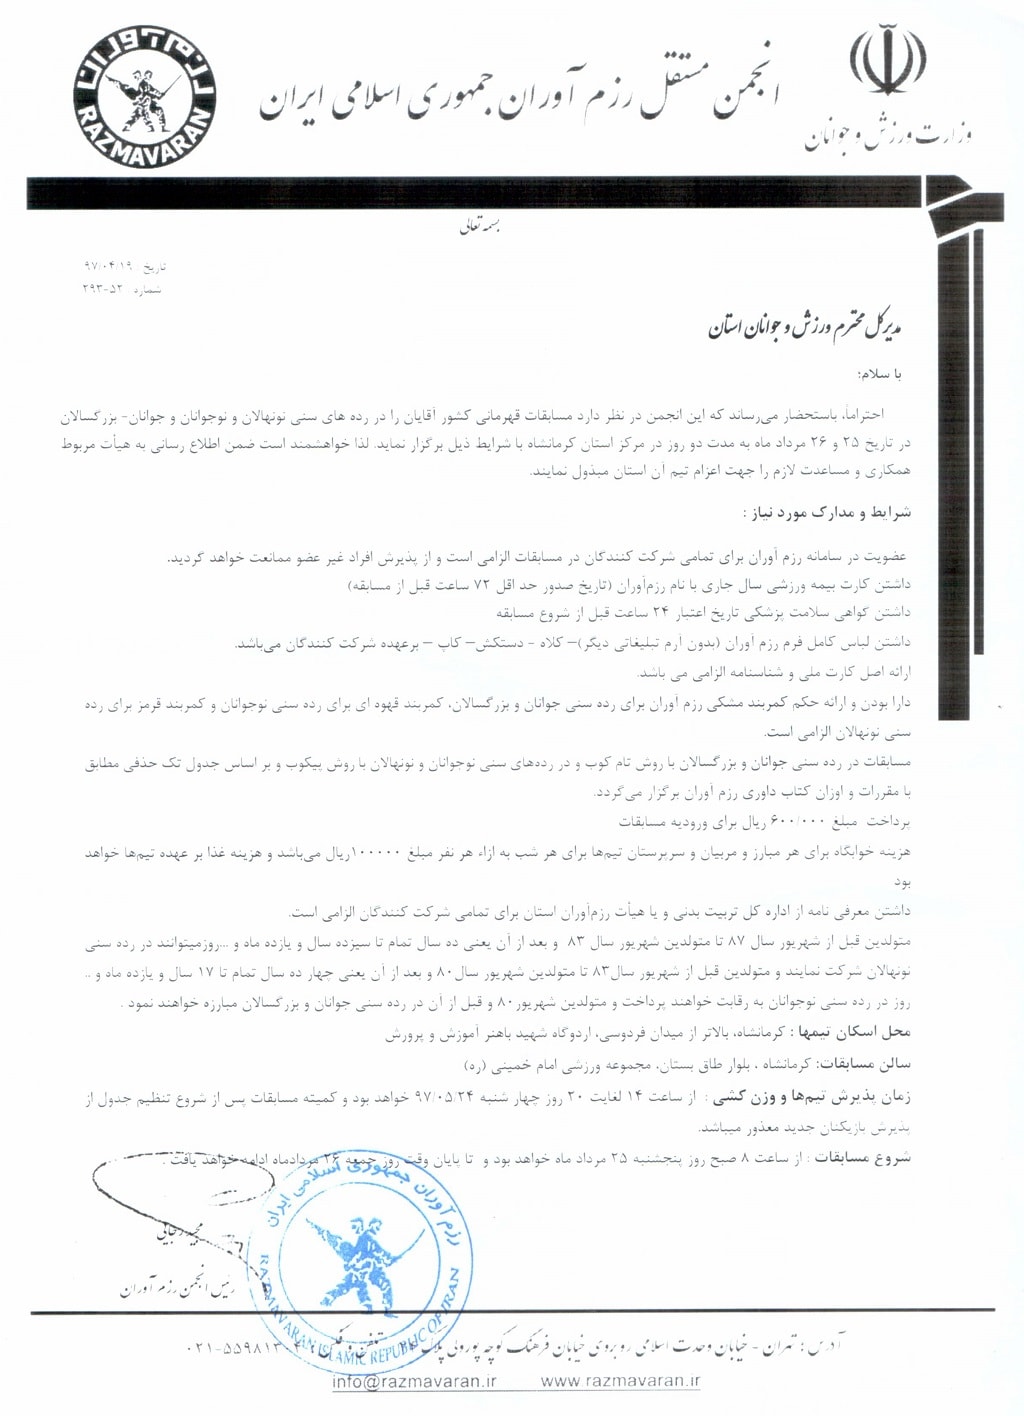 رزم آوران
RAZMAVARAN
انجمن مستقل رزم آوران جمهوری اسلامی ایران
وزارت ورزش و جوانان
بسمه تعالی
تاریخ ۹۷/۰۴/۱۹
شماره ۲۹۳-۵۲
مدیرکل محترم ورزش و جوانان استان
با سلام؛
احتراماً، باستحضار می‌رساند که این انجمن در نظر دارد مسابقات قهرمانی کشور آقایان را در رده های سنی نونهالان و نوجوانان و جوانان- بزرگسالان
در تاریخ ۲۵ و ۲۶ مرداد ماه به مدت دو روز در مرکز استان کرمانشاه با شرایط ذیل برگزار نماید. لذا خواهشمند است ضمن اطلاع رسانی به هیأت مربوط
همکاری و مساعدت لازم را جهت اعزام تیم آن استان مبذول نمایند.
شرایط و مدارک مورد نیاز :
عضویت در سامانه رزم آوران برای تمامی شرکت کنندگان در مسابقات الزامی است و از پذیرش افراد غیر عضو ممانعت خواهد گردید.
داشتن کارت بیمه ورزشی سال جاری با نام رزم‌آوران (تاریخ صدور حد اقل ۷۲ ساعت قبل از مسابقه)
داشتن گواهی سلامت پزشکی تاریخ اعتبار ۲۴ ساعت قبل از شروع مسابقه
داشتن لباس کامل فرم رزم آوران (بدون آرم تبلیغاتی دیگر)– کلاه - دستکش– کاپ – برعهده شرکت کنندگان می‌باشد.
ارائه اصل کارت ملی و شناسنامه الزامی می باشد.
دارا بودن و ارائه حکم کمربند مشکی رزم آوران برای رده سنی جوانان و بزرگسالان، کمربند قهوه ای برای رده سنی نوجوانان و کمربند قرمز برای رده
سنی نونهالان الزامی است.
مسابقات در رده سنی جوانان و بزرگسالان با روش تام کوب و در رده‌های سنی نوجوانان و نونهالان با روش پیکوب و بر اساس جدول تک حذفی مطابق
با مقررات و اوزان کتاب داوری رزم آوران برگزار می‌گردد.
پرداخت مبلغ ۶۰۰/۰۰۰ ریال برای ورودیه مسابقات
هزینه خوابگاه برای هر مبارز و مربیان و سرپرستان تیم‌ها برای هر شب به ازاء هر نفر مبلغ ۱۰۰۰۰۰ریال می‌باشد و هزینه غذا بر عهده تیم‌ها خواهد
بود
داشتن معرفی نامه از اداره کل تربیت بدنی و یا هیأت رزم‌آوران استان برای تمامی شرکت کنندگان الزامی است.
متولدین قبل از شهریور سال ۸۷ تا متولدین شهریور سال ۸۳ و بعد از آن یعنی ده سال تمام تا سیزده سال و یازده ماه و ...روزمیتوانند در رده سنی
نونهالان شرکت نمایند و متولدین قبل از شهریور سال۸۳ تا متولدین شهریور سال۸۰ و بعد از آن یعنی چهار ده سال تمام تا ۱۷ سال و یازده ماه و ..
روز در رده سنی نوجوانان به رقابت خواهند پرداخت و متولدین شهریور۸۰ و قبل از آن در رده سنی جوانان و بزرگسالان مبارزه خواهند نمود .
محل اسکان تیمها : کرمانشاه، بالاتر از میدان فردوسی، اردوگاه شهید باهنر آموزش و پرورش
سالن مسابقات: کرمانشاه ، بلوار طاق بستان، مجموعه ورزشی امام خمینی (ره)
زمان پذیرش تیم‌ها و وزن کشی : از ساعت ۱۴ لغایت ۲۰ روز چهار شنبه ۹۷/۰۵/۲۴ خواهد بود و کمیته مسابقات پس از شروع تنظیم جدول از
پذیرش بازیکنان جدید معذور میباشد.
شروع مسابقات : از ساعت ۸ صبح روز پنجشنبه ۲۵ مرداد ماه خواهد بود و تا پایان وقت روز جمعه ۲۶ مردادماه ادامه خواهد یافت .
رزم آوران جمهوری اسلامی ایران
RAZMAVARAN ISLAMIC REPUBLIC OF IRAN
مجید رجایی
رئیس انجمن رزم آوران
آدرس : تهران - خیابان وحدت اسلامی روبروی خیابان فرهنگ کوچه پورولی پلاک تلفن و فکس : ۰۲۱-۵۵۹۸۱۳
info@razmavaran.ir www.razmavaran.ir